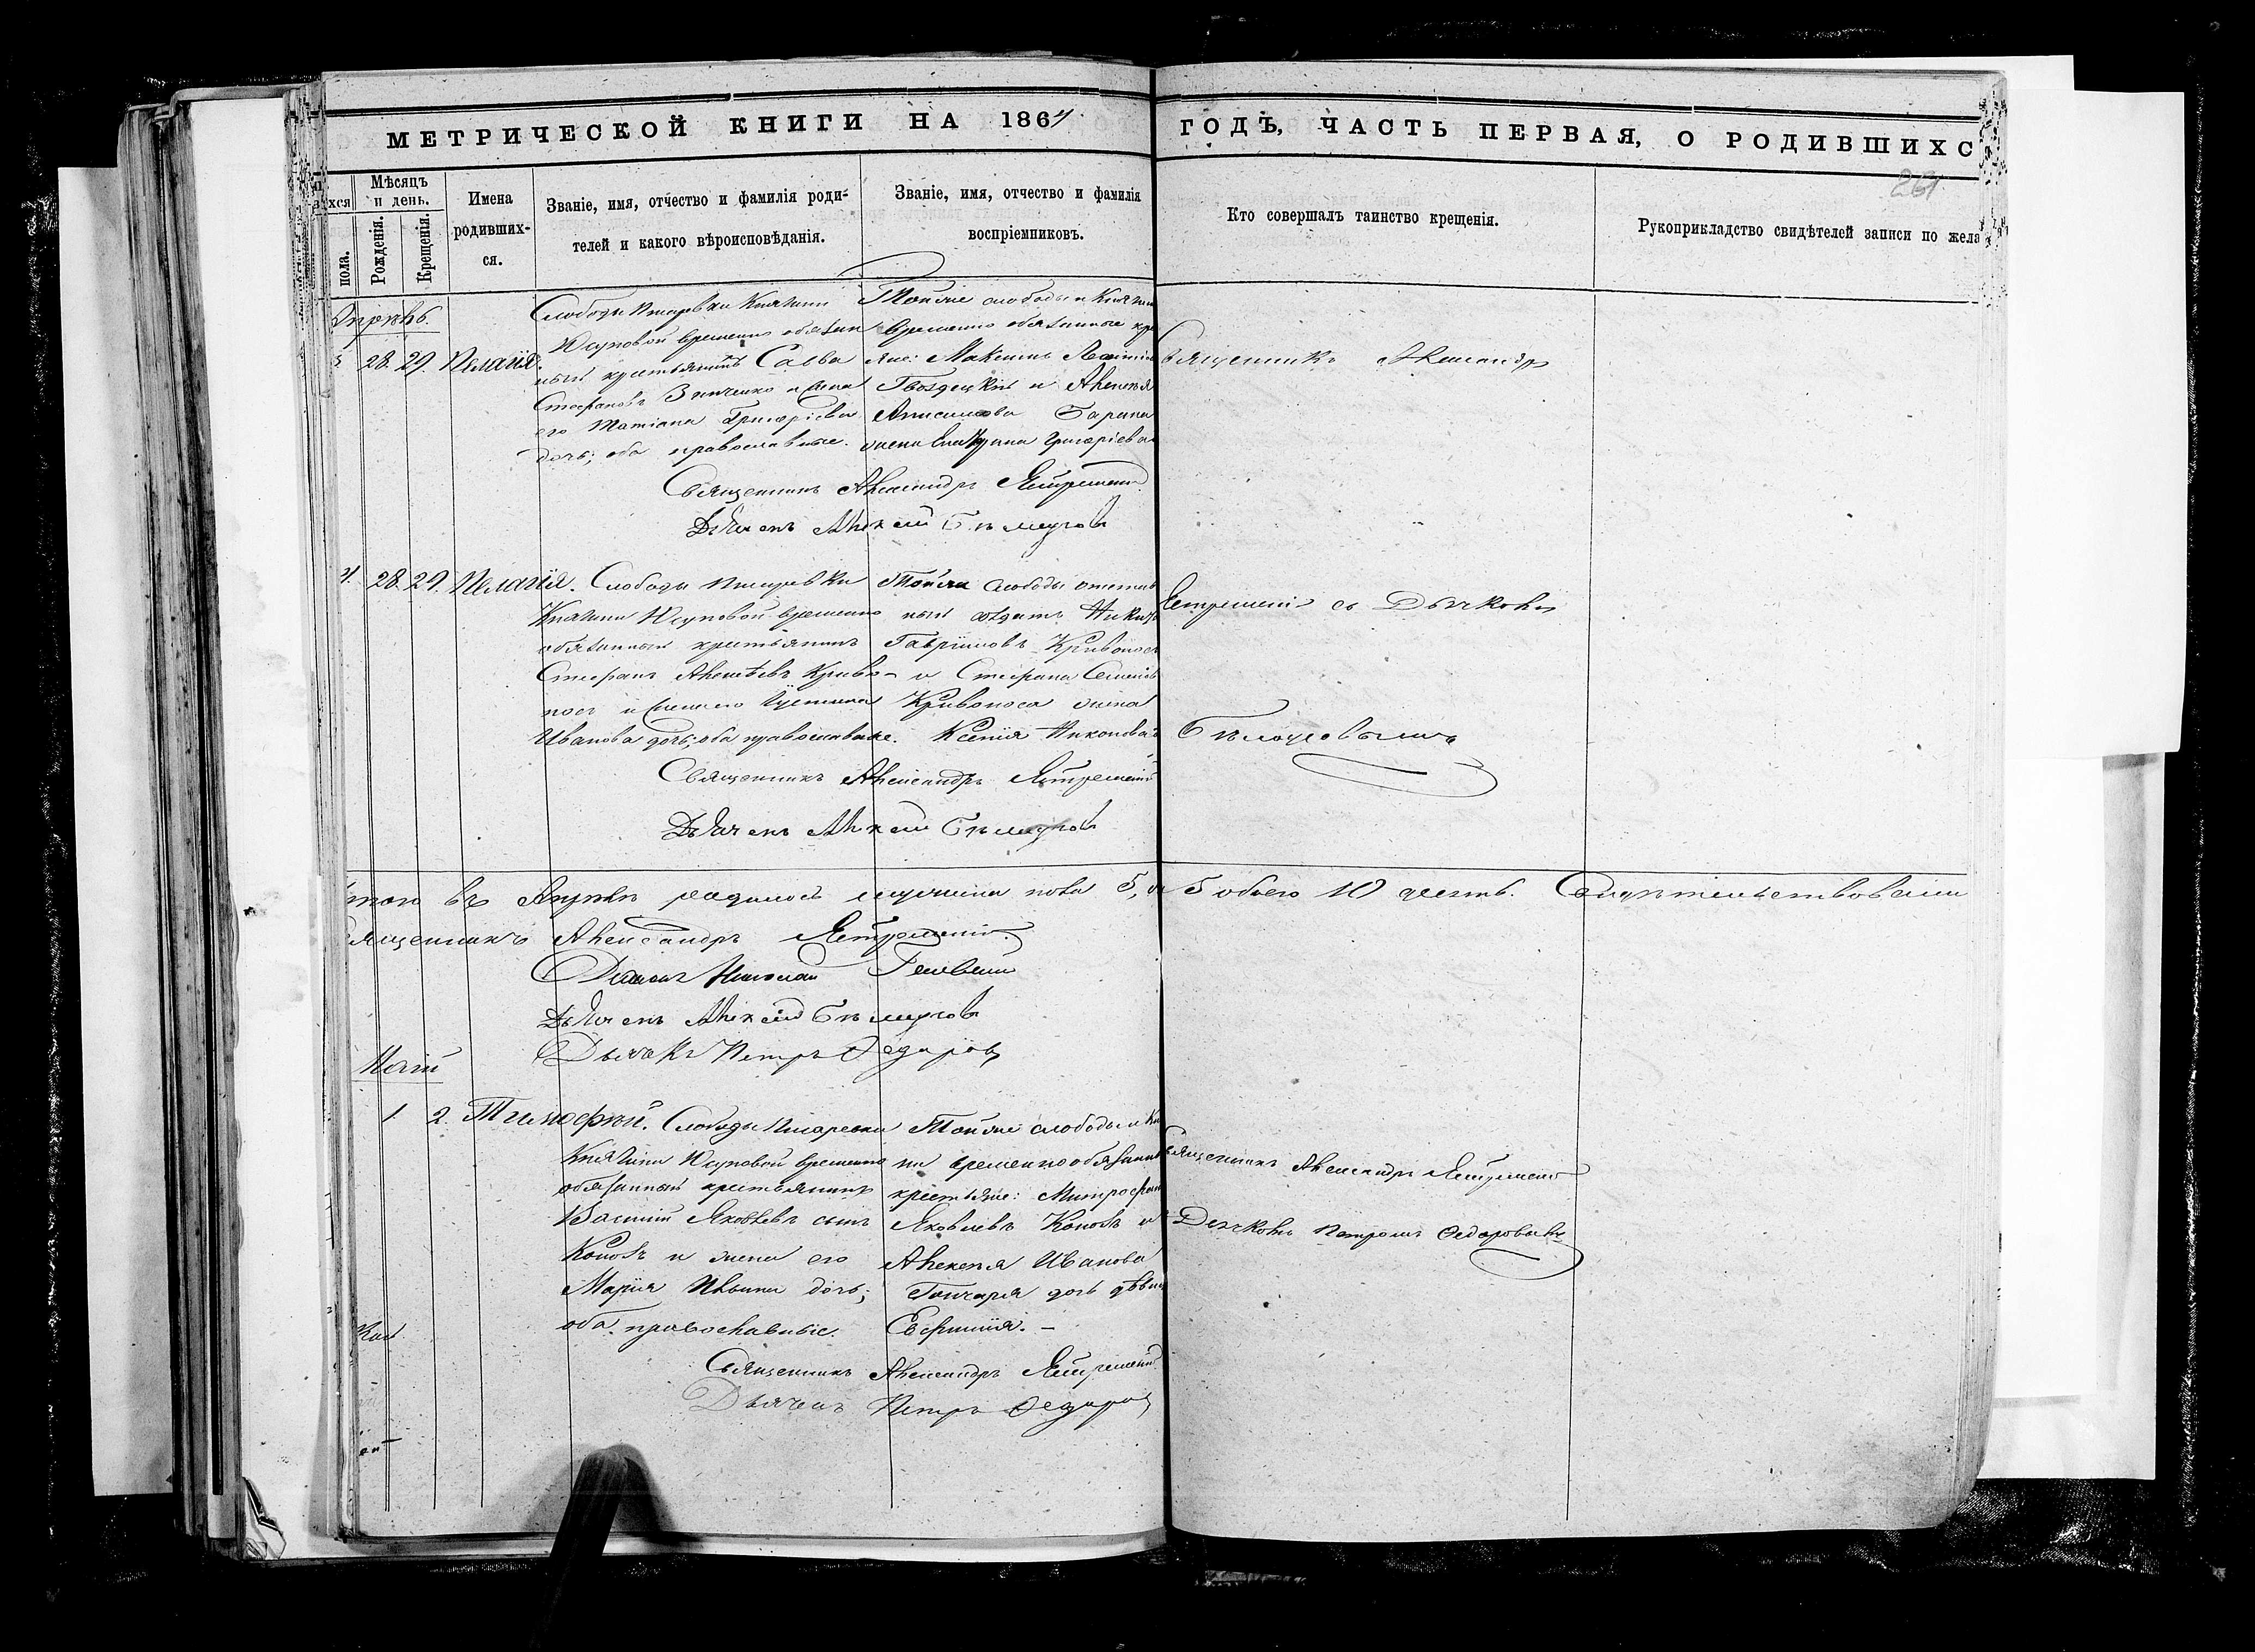 МЕТРИЧЕСКОЙ КНИГИ НА 1864 ГОДЪ, ЧАСТЬ ПЕРВАЯ, О РОДИВШИХС
261
хся
пола.
Мѣсяцъ и день.
Рожденія.
Крещенія.
Имена родивших-ся.
Званіе, имя, отчество и фамилія роди-
телей и какого вѣроисповѣданія.
Званіе, имя, отчество и фамилія
воспріемниковъ.
Кто совершалъ таинство крещенія.
Рукоприкладство свидѣтелей записи по жела
Апрѣль.
28. 29. Пелагія.
Слободы Писаревки Княгини
Юсуповой временно обязан
ный крестьянинъ Савва
Стефановъ Зинченко и жена
его Татіана Григоріева
дочь; оба православные.
Тойже слободы и Княгин
временно обязанные кре
яне: Максимъ
Гвоздецкій и Алексѣя
Анисимова
жена Екатерина Григоріева
Священникъ Александръ
Священникъ Александръ Ястремскій
Дьячекъ Алексѣй Бѣлоусовъ
4. 28. 29. Пелагія.
Слободы Писаревки
Княгини Юсуповой временно
обязанный крестьянинъ
Стефанъ Алексѣевъ Криво-
носъ и жена его Іустина
Иванова дочь; оба православные.
Тойже слободы отстав
ный солдатъ
Гавріиловъ Кривонос
и Стефана Семенов
Кривоноса жена
Ксенія Никонова
Ястремскій съ Дьячкомъ
Бѣлоусовымъ
Священникъ Александръ Ястремскій
Дьячекъ Алексѣй Бѣлоусовъ
того въ Апрѣлѣ родилось мужеска пола 5, 5 обоего 10 душъ. Свидѣтельствовали
Священникъ Александръ Ястремскій
Николай
Дьячекъ Алексѣй Бѣлоусовъ
Дьячекъ Петръ Ѳедоровъ
Маій
1. 2. Тимоѳей.
Слободы Писаревки
Княгини Юсуповой временно
обязанный крестьянинъ
Василій Яковлевъ сынъ
Коновъ и жена его
Марія Ильина дочь;
оба православные.
Тойже слободы и Кн
ни временнообязанн
крестьяне: Митрофан
Яковлевъ Коновъ и
Алексѣя Иванова
Гончаря дочь дѣвиц
Евфимія. –
Священникъ Александръ Ястремскій
Дьячкомъ Петромъ Ѳедоровымъ
Священникъ Александръ Ястремскій
Дьячекъ Петръ Ѳедоровъ